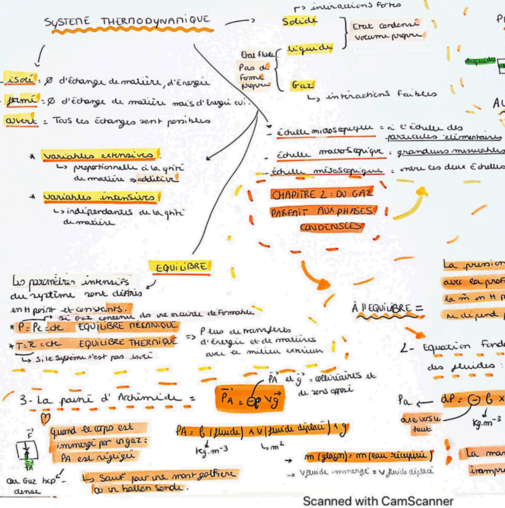 SYSTEME THERMODYNAMIQUE
↳ interactions Fortes
Solide
Liquide
Etat condensé
volume propre
Etat fluide
Pas de
Forme
propre
Gaz
↳ interactions faibles
isolé = Ø d'échange de matière, d'Energie
fermé = Ø d'échange de matière mais d'Energie oui.
ouvert = Tous les échanges sont possibles
* variables extensives :
↳ proportionnelle à la qtité
de matière additive
* variables intensives :
↳ indépendantes de la qtité
de matière
- échelle microscopique = à l'échelle des
particules élémentaires
- échelle macroscopique = grandeurs mesurables
- échelle mésoscopique = entre ces deux échelles
CHAPITRE 2 : DU GAZ
PARFAIT AUX PHASES
CONDENSÉES
EQUILIBRE
Les paramètres intensifs
du système sont définis
en H point et constants.
↳ si Gaz contenu ds une enceinte déformable
* P = Pe = cte EQUILIBRE MECANIQUE
* T = Te = cte EQUILIBRE THERMIQUE
↳ Si le système n'est pas isolé
=> Plus de transferts
d'énergie et de matières
avec le milieu extérieur
À l'EQUILIBRE =
La pression
avec la prof
la m en H p
ne dépend p
2- Equation Fond
des fluides :
Pa ← dP = ⊖ ρ x
axe vers le
haut
kg.m⁻³
La mas
3- La poussée d'Archimède =
PA = ⊖ρVg
PA et g = colinéaires et
de sens opposé
quand le corps est
immergé par un gaz =
PA est négligé
F
car Gaz trop
dense
↳ Sauf pour une montgolfière
ou un ballon sonde.
PA = ρ(fluide) x V(fluide déplacé) x g
kg.m⁻³
m³
→ m(glaçon) = m(eau récupérée)
→ V fluide immergé = V fluide déplacé
Scanned with CamScanner